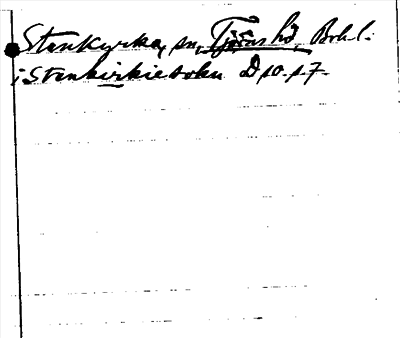 Stenkyrka, sn, Tjörns hd, Bohl.
i Stenkirkiesokn D 10. s. 7.